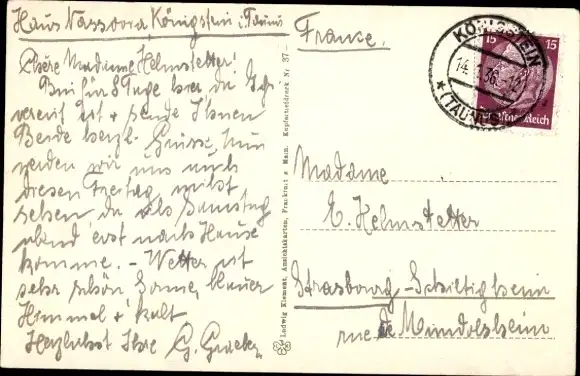 Haus Nassovia, Königstein i. Taunus
Chère Madame Helmstetter!
Bin für 8 Tage hier da
vereist ist + sende Ihnen
Beide herzl. Grüsse, nun
werden wir uns auch
diesen Freitag nicht
sehen da ich Samstag
abend erst nach Hause
komme. - Wetter ist
sehr schön Sonne, blauer
Himmel + kalt
Herzlichst Ihre G.
Ludwig Klement, Ansichtskarten, Frankfurt a. Main. Kupfertiefdruck Nr. 37
France.
KÖNIGSTEIN
36
(TAUNUS)
15 15
Deutsches Reich
Madame
E. Helmstetter
Strasbourg-Schiltigheim
rue de Mundolsheim